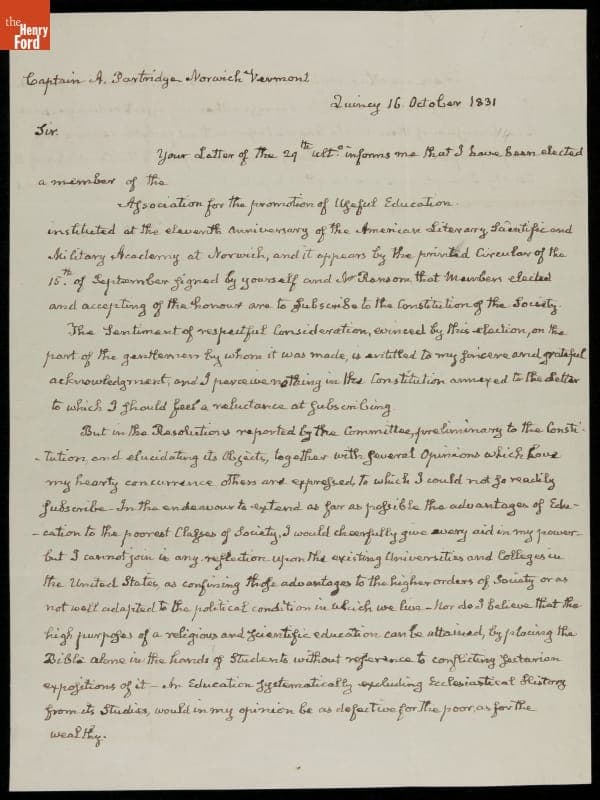 the
Henry
Ford
Captain A. Partridge Norwich Vermont
Quincy 16 October 1831
Sir.
Your Letter of the 29th ulto. informs me that I have been elected
a member of the
Association for the promotion of Useful Education.
instituted at the eleventh Anniversary of the American Literary, Scientific and
Military Academy at Norwich, and it appears by the printed Circular of the
15th of September signed by yourself and Mr Ransom that Members elected
and accepting of the honour are to subscribe to the Constitution of the Society.
The Sentiment of respectful Consideration, evinced by this election, on the
part of the gentlemen by whom it was made, is entitled to my sincere and grateful
acknowledgment, and I perceive nothing in the Constitution annexed to the Letter
to which I should feel a reluctance at subscribing.
But in the Resolutions reported by the Committee, preliminary to the Consti-
-tution, and elucidating its Objects, together with several Opinions which have
my hearty concurrence others are expressed to which I could not so readily
subscribe. In the endeavour to extend as far as possible the advantages of Edu-
-cation to the poorest Classes of Society, I would cheerfully give every aid in my power-
but I cannot join in any reflection upon the existing Universities and Colleges in
the United States, as confining those advantages to the higher orders of Society or as
not well adapted to the political condition in which we live - Nor do I believe that the
high purposes of a religious and scientific education can be attained, by placing the
Bible alone in the hands of Students without reference to conflicting sectarian
expositions of it - An Education systematically excluding Ecclesiastical History
from its Studies, would in my opinion be as defective for the poor, as for the
wealthy.